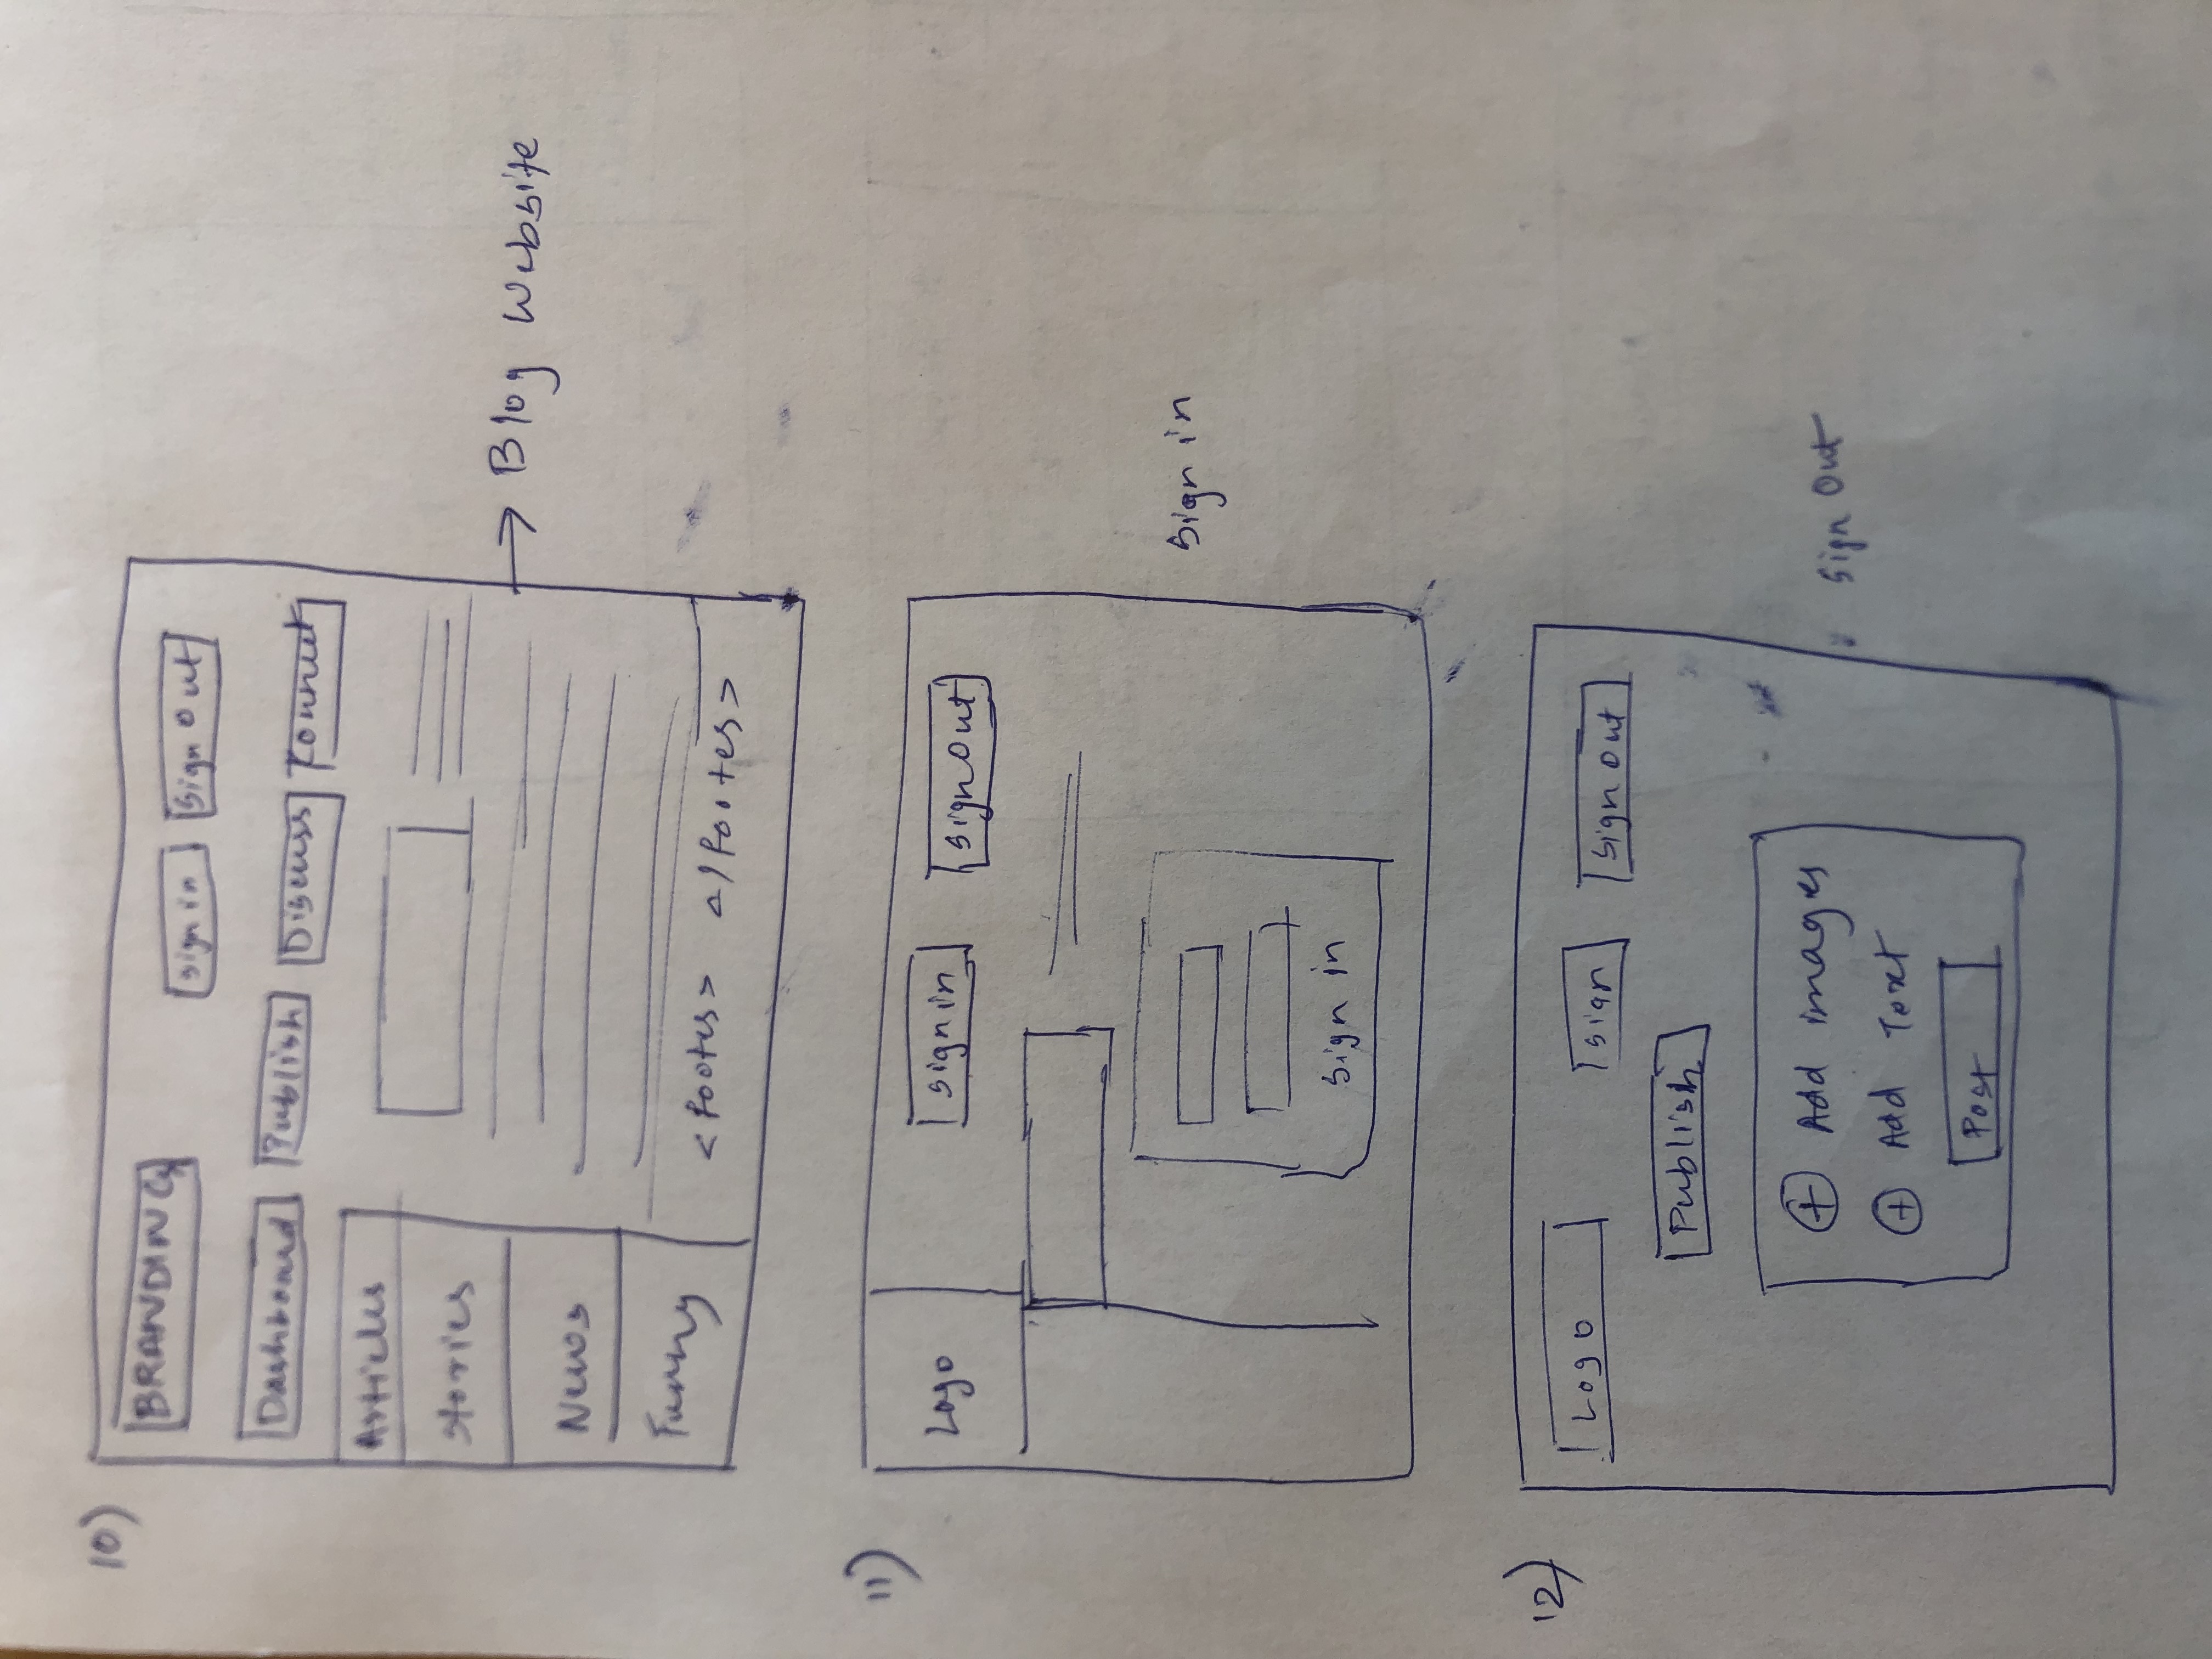 10)
BRANDING
sign in Sign Out
Dashboard Publish Discuss Connect
Articles
Stories
News
Funny
<footer> </footer>
→ Blog Website
11)
Logo
sign in
sign Out
Sign in
Sign in
12)
Logo
sign
sign out
Publish
+ Add images
+ Add Text
Post
Sign Out